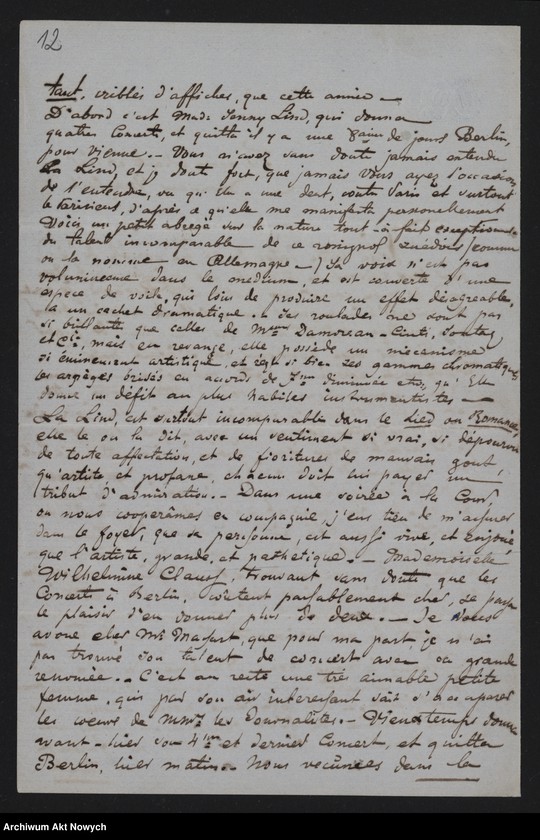 12
tant, criblés d'affiches, que cette année –
D'abord c'est Mad.e Jenny Lind, qui donna
quatre Concerts, et quitta il y a une 8aine de jours Berlin,
pour Vienne. – Vous n'avez sans doute jamais entendu
la Lind, et j'y doute fort, que jamais vous ayez l'occasion
de l'entendre, vu qu'Elle a une dent, contre Paris et surtout
le Parisiens, d'après ce qu'elle me manifesta personellement
Voici un petit abregé sur la nature tout-à-fait exceptionel
du talent incomparable de ce rossignol suédois (comme
on la nomme en Allemagne –) Sa voix n'est pas
volumineuse dans le medium, et est couverte d'une
espèce de voile, qui loin de produire un effet désagreable,
a un cachet dramatique. – Ses roulades ne sont pas
si brillantes que celles de Mmes Damoreau-Cinti, Sontag
et Cie, mais en revange, elle possède un mécanisme
si éminement artistique, et c'est si bien ses gammes chromatiques
les arpèges brisés en accords de 7me diminuée etc, qu'Elle
donne un défit au plus habiles instrumentistes –
La Lind, est surtout incomparable dans le Lied ou Romance
elle le ou la dit, avec un sentiment si vrai, si dépourvu
de toute affectation, et de fioritures de mauvais goût
qu'artiste, et profane, chacun doit lui payer un
tribut d'admiration. – Dans une soirée à la Cour,
ou nous cooperâmes en compagnie, j'eus lieu de m'assurer
dans le foyer, que sa personne, est aussi vive, et enjouée
que l'artiste, grande et pathetique. – Mademoiselle
Wilhelmine Clauss, trouvant sans doute que les
Concerts à Berlin, coûtent passablement cher, se passe
le plaisir d'en donner plus de deux. – Je vous
avoue cher Mr Masart, que pour ma part, je n'ai
pas trouvé son talent de concert avec sa grande
renomée. – C'est au reste une très aimable petite
femme, qui par son air interessant sait s'accaparer
les coeurs de Mmrs les Journalistes. – Vieuxtemps donna
avant-hier son 4me et dernier Concert, et quitta
Berlin, hier matin. – Nous vecûmes dans la
Archiwum Akt Nowych